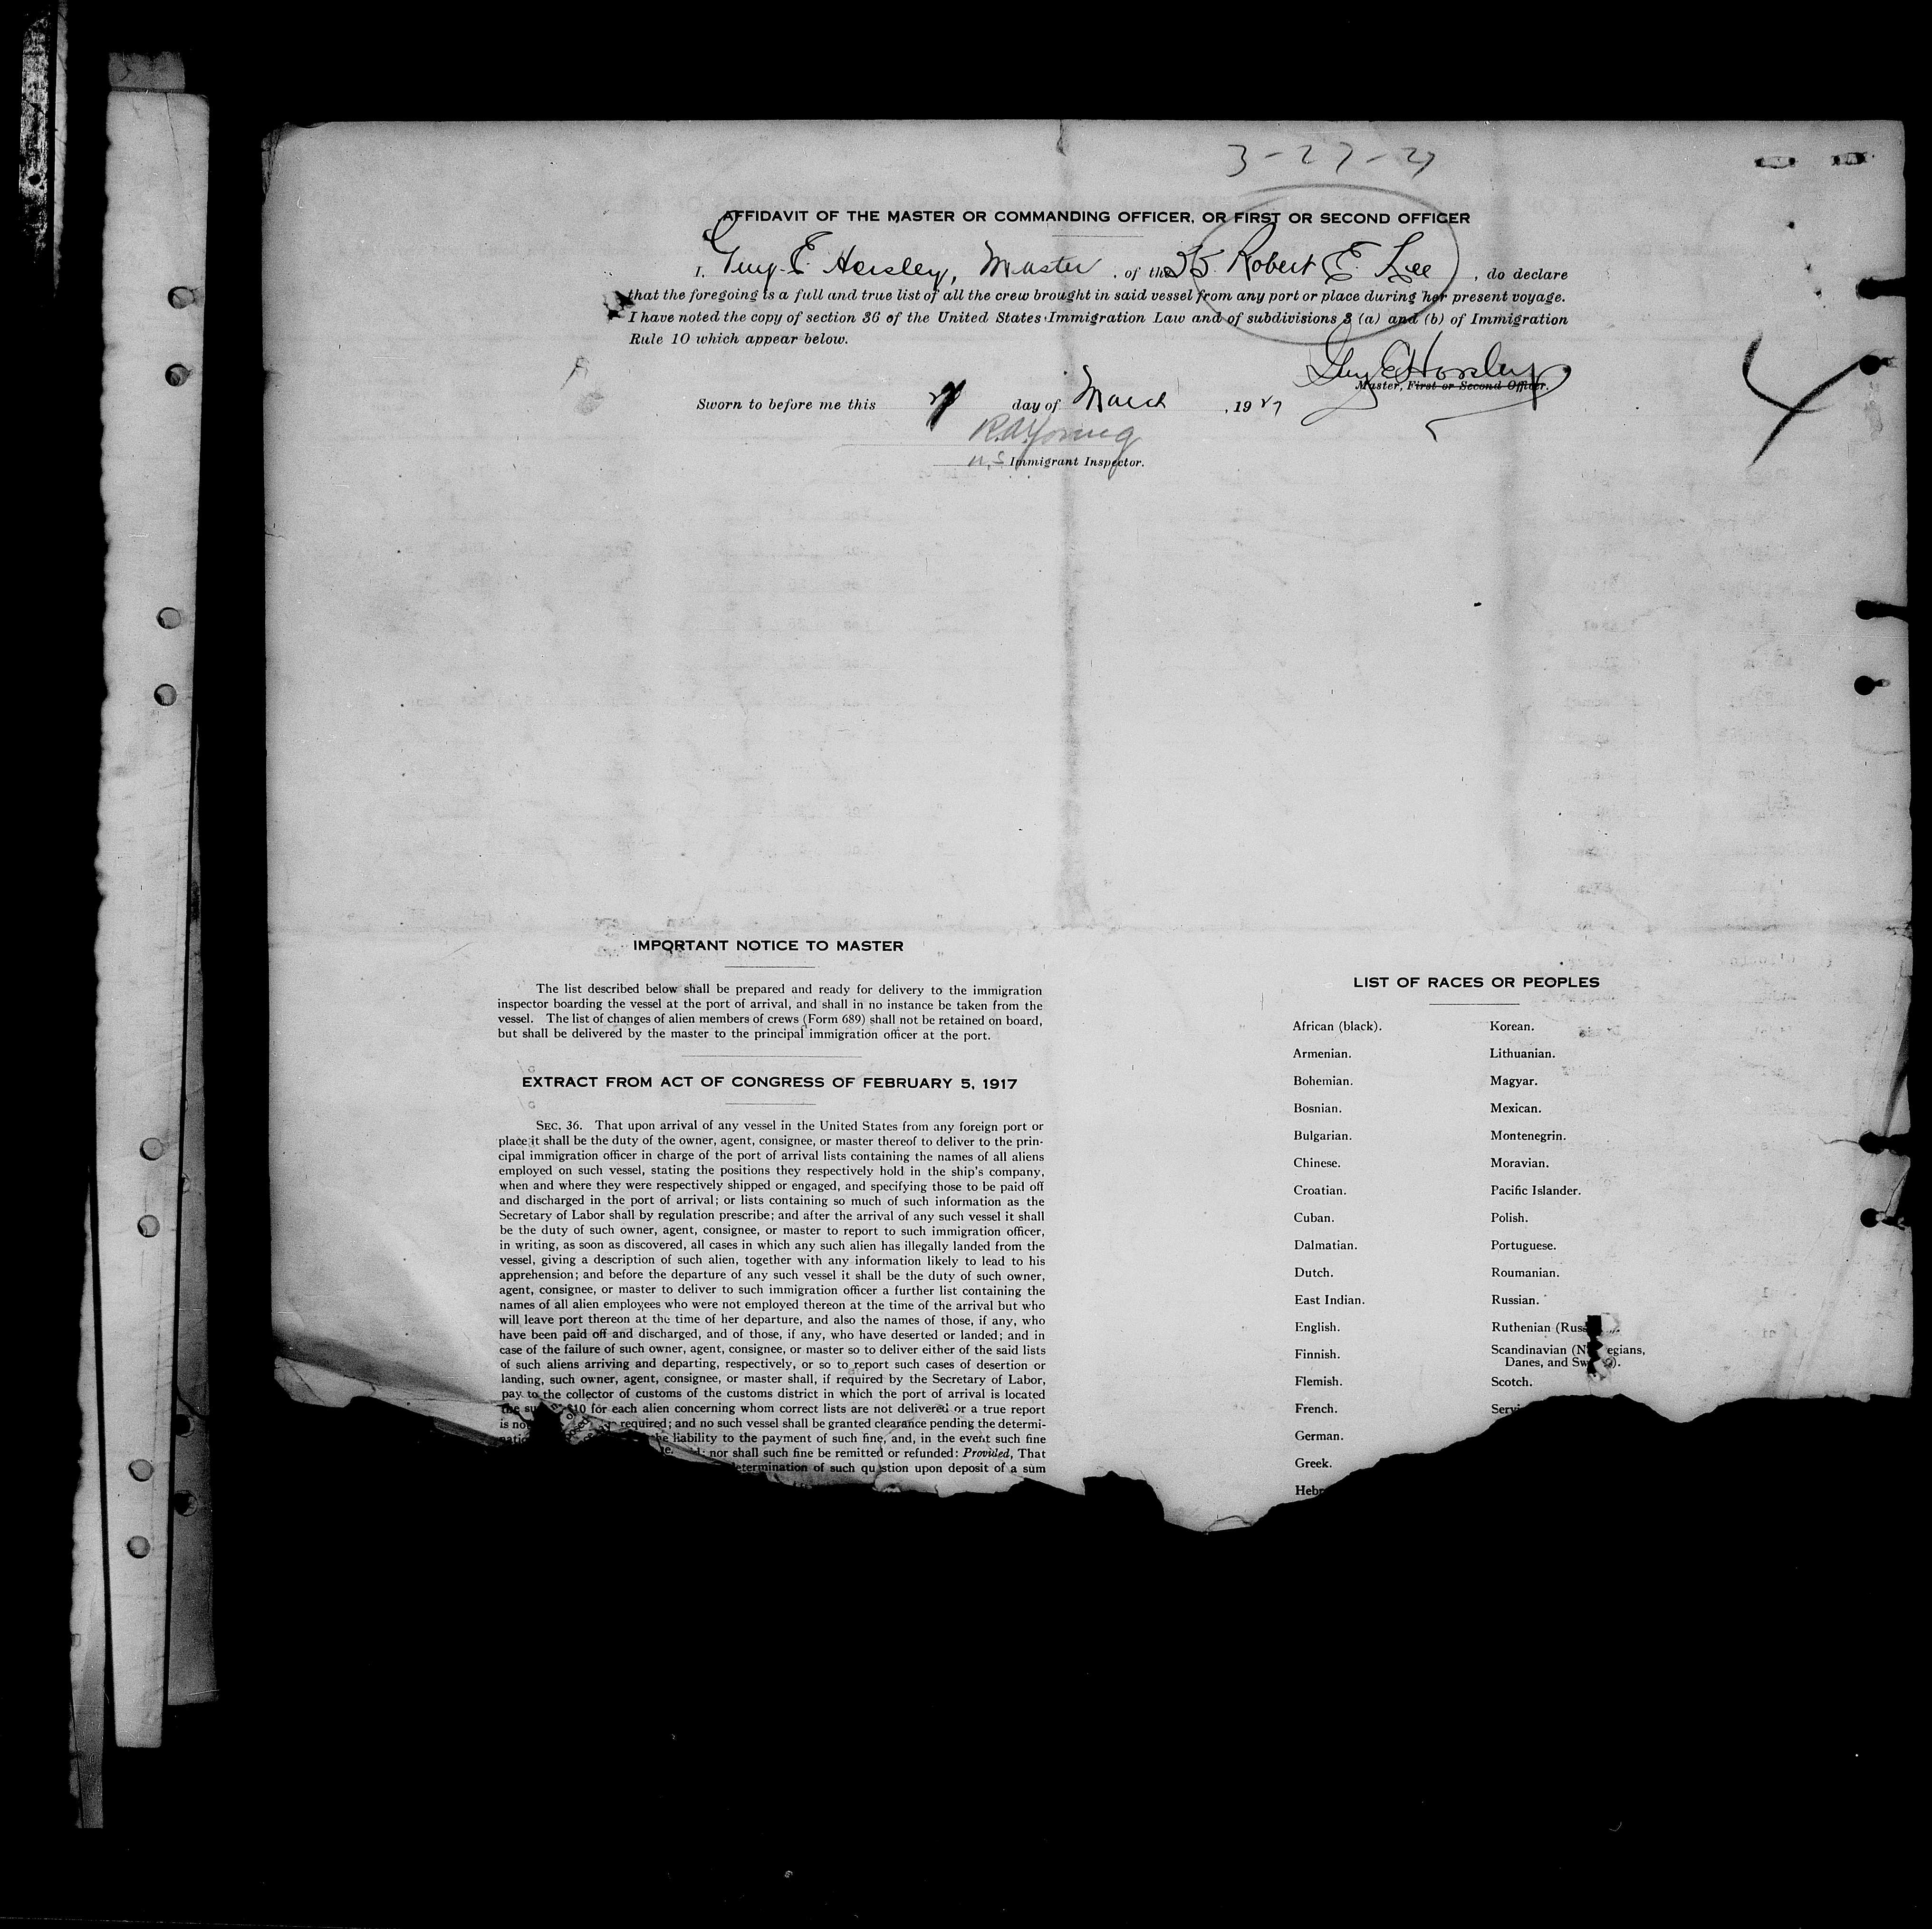 3-27-27
AFFIDAVIT OF THE MASTER OR COMMANDING OFFICER, OR FIRST OR SECOND OFFICER
I, Guy E. Horsley, Master, of the SS. Robert E. Lee, do declare
that the foregoing is a full and true list of all the crew brought in said vessel from any port or place during her present voyage.
I have noted the copy of section 36 of the United States Immigration Law and of subdivisions 3 (a) and (b) of Immigration
Rule 10 which appear below.
Guy E Horsley
Master, First or Second Officer.
Sworn to before me this 27 day of March, 1927
R.A. Young
U.S. Immigrant Inspector.
IMPORTANT NOTICE TO MASTER
The list described below shall be prepared and ready for delivery to the immigration
inspector boarding the vessel at the port of arrival, and shall in no instance be taken from the
vessel. The list of changes of alien members of crews (Form 689) shall not be retained on board,
but shall be delivered by the master to the principal immigration officer at the port.
EXTRACT FROM ACT OF CONGRESS OF FEBRUARY 5, 1917
SEC. 36. That upon arrival of any vessel in the United States from any foreign port or
place it shall be the duty of the owner, agent, consignee, or master thereof to deliver to the prin-
cipal immigration officer in charge of the port of arrival lists containing the names of all aliens
employed on such vessel, stating the positions they respectively hold in the ship's company,
when and where they were respectively shipped or engaged, and specifying those to be paid off
and discharged in the port of arrival; or lists containing so much of such information as the
Secretary of Labor shall by regulation prescribe; and after the arrival of any such vessel it shall
be the duty of such owner, agent, consignee, or master to report to such immigration officer,
in writing, as soon as discovered, all cases in which any such alien has illegally landed from the
vessel, giving a description of such alien, together with any information likely to lead to his
apprehension; and before the departure of any such vessel it shall be the duty of such owner,
agent, consignee, or master to deliver to such immigration officer a further list containing the
names of all alien employees who were not employed thereon at the time of the arrival but who
will leave port thereon at the time of her departure, and also the names of those, if any, who
have been paid off and discharged, and of those, if any, who have deserted or landed; and in
case of the failure of such owner, agent, consignee, or master so to deliver either of the said lists
of such aliens arriving and departing, respectively, or so to report such cases of desertion or
landing, such owner, agent, consignee, or master shall, if required by the Secretary of Labor,
pay to the collector of customs of the customs district in which the port of arrival is located
the su $10 for each alien concerning whom correct lists are not delivered or a true report
is no required; and no such vessel shall be granted clearance pending the determi-
natio he liability to the payment of such fine, and, in the event such fine
nor shall such fine be remitted or refunded: Provided, That
etermination of such question upon deposit of a sum
LIST OF RACES OR PEOPLES
African (black).
Armenian.
Bohemian.
Bosnian.
Bulgarian.
Chinese.
Croatian.
Cuban.
Dalmatian.
Dutch.
East Indian.
English.
Finnish.
Flemish.
French.
German.
Greek.
Hebr
Korean.
Lithuanian.
Magyar.
Mexican.
Montenegrin.
Moravian.
Pacific Islander.
Polish.
Portuguese.
Roumanian.
Russian.
Ruthenian (Russ
Scandinavian (N egians,
Danes, and Sw ).
Scotch.
Servi